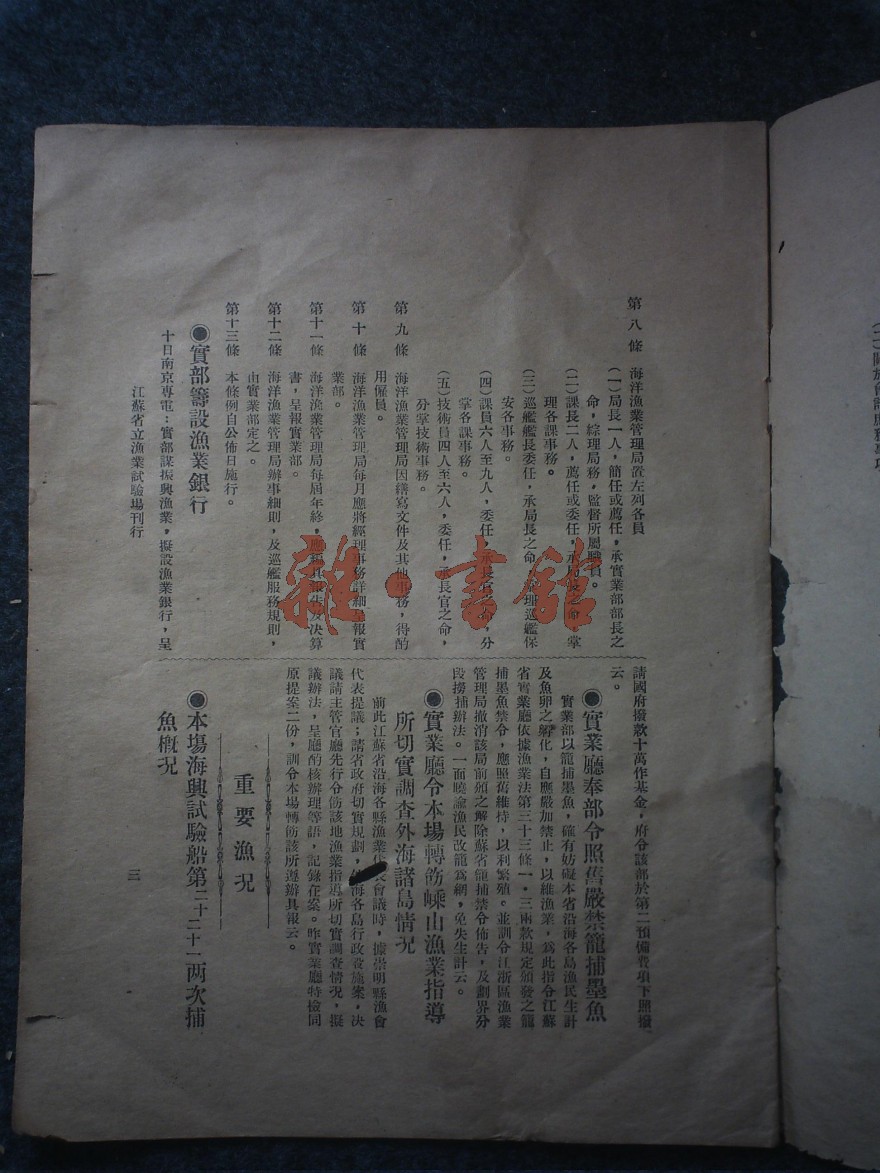 第八條　海洋漁業管理局置左列各員
(一)局長一人，簡任或薦任，承實業部部長之
命，綜理局務，監督所屬職員。
(二)課長二人，薦任或委任，承局長之命，掌
理各課事務。
(三)巡艦艦長委任，承局長之命，管理巡艦保
安各事務。
(四)課員六人至九人，委任，承長官之命，分
掌各課事務。
(五)技術員四人至六人，委任，承長官之命，
分掌技術事務。
第九條　海洋漁業管理局因繕寫文件及其他事務，得酌
用僱員。
第十條　海洋漁業管理局每月應將經理事務詳細呈報實
業部。
第十一條　海洋漁業管理局每屆年終，應編具報告及決算
書，呈報實業部。
第十二條　海洋漁業管理局辦事細則，及巡艦服務規則，
由實業部定之。
第十三條　本條例自公佈日施行。
●實部籌設漁業銀行
十日南京專電：實部謀振興漁業，擬設漁業銀行，呈
江蘇省立漁業試驗場刊行
請國府撥欵十萬作基金，府令該部於第二預備費項下照撥
云。
●實業廳奉部令照舊嚴禁籠捕墨魚
實業部以籠捕墨魚，確有妨礙本省沿海各島漁民生計
及魚卵之孵化，自應嚴加禁止，以維漁業，爲此指令江蘇
省實業廳依據漁業法第三十三條一．三兩款規定頒發之籠
捕墨魚禁令，應照舊維持，以利繁殖。並訓令江浙區漁業
管理局撤消該局前頒之解除蘇省籠捕禁令佈告，及劃界分
段撈捕辦法。一面曉諭漁民改籠爲網，免失生計云。
●實業廳令本場轉飭嵊山漁業指導
所切實調查外海諸島情况
前此江蘇省沿海各縣漁業代表會議時，據崇明縣漁會
代表提議；請省政府切實規劃，外海各島行政設施案，決
議請主管官廳先行令飭該地漁業指導所切實調查情况，擬
議辦法，呈廳酌核辦理等語，記錄在案。昨實業廳特檢同
原提案二份，訓令本場轉飭該所遵辦具報云。
重要漁况
●本場海興試驗船第二十二十一两次捕
魚概况
三
雜·書館